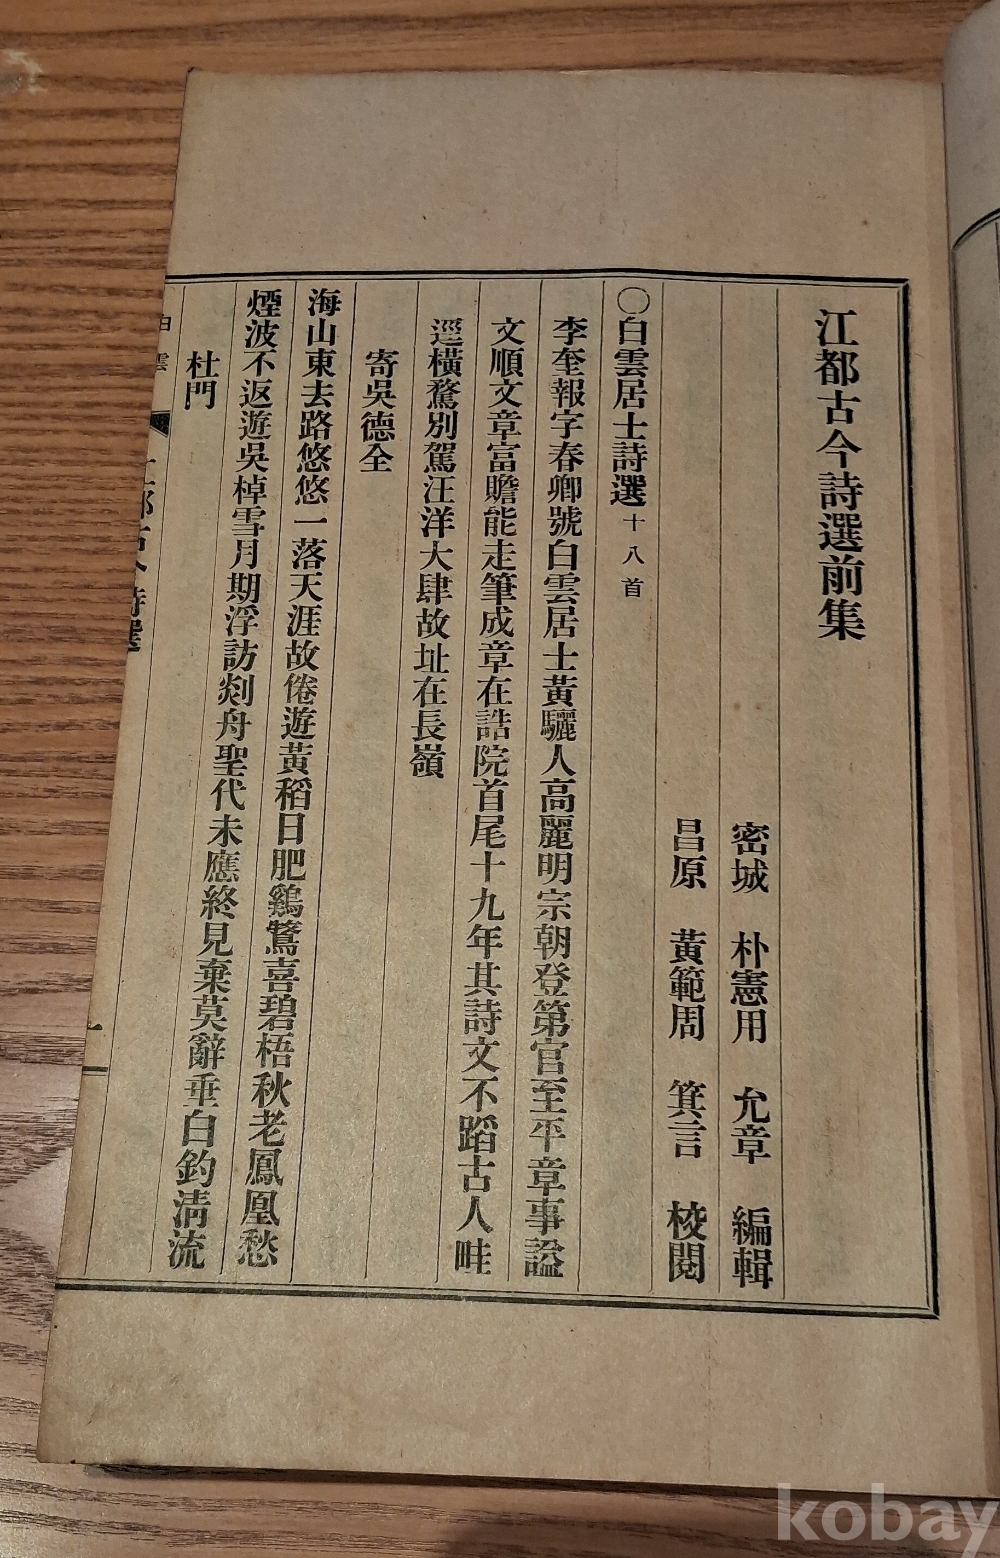 江都古今詩選前集
密城 朴憲用 允章 編輯
昌原 黃範周 箕言 校閱
○白雲居士詩選 十八首
李奎報字春卿號白雲居士黃驪人高麗明宗朝登第官至平章事諡
文順文章富贍能走筆成章在誥院首尾十九年其詩文不蹈古人畦
逕橫騖別駕汪洋大肆故址在長嶺
寄吳德全
海山東去路悠悠一落天涯故倦遊黃稻日肥鷄鶩喜碧梧秋老鳳凰愁
煙波不返遊吳棹雪月期浮訪剡舟聖代未應終見棄莫辭垂白釣淸流
杜門
白雲
江都古今詩選
kobay